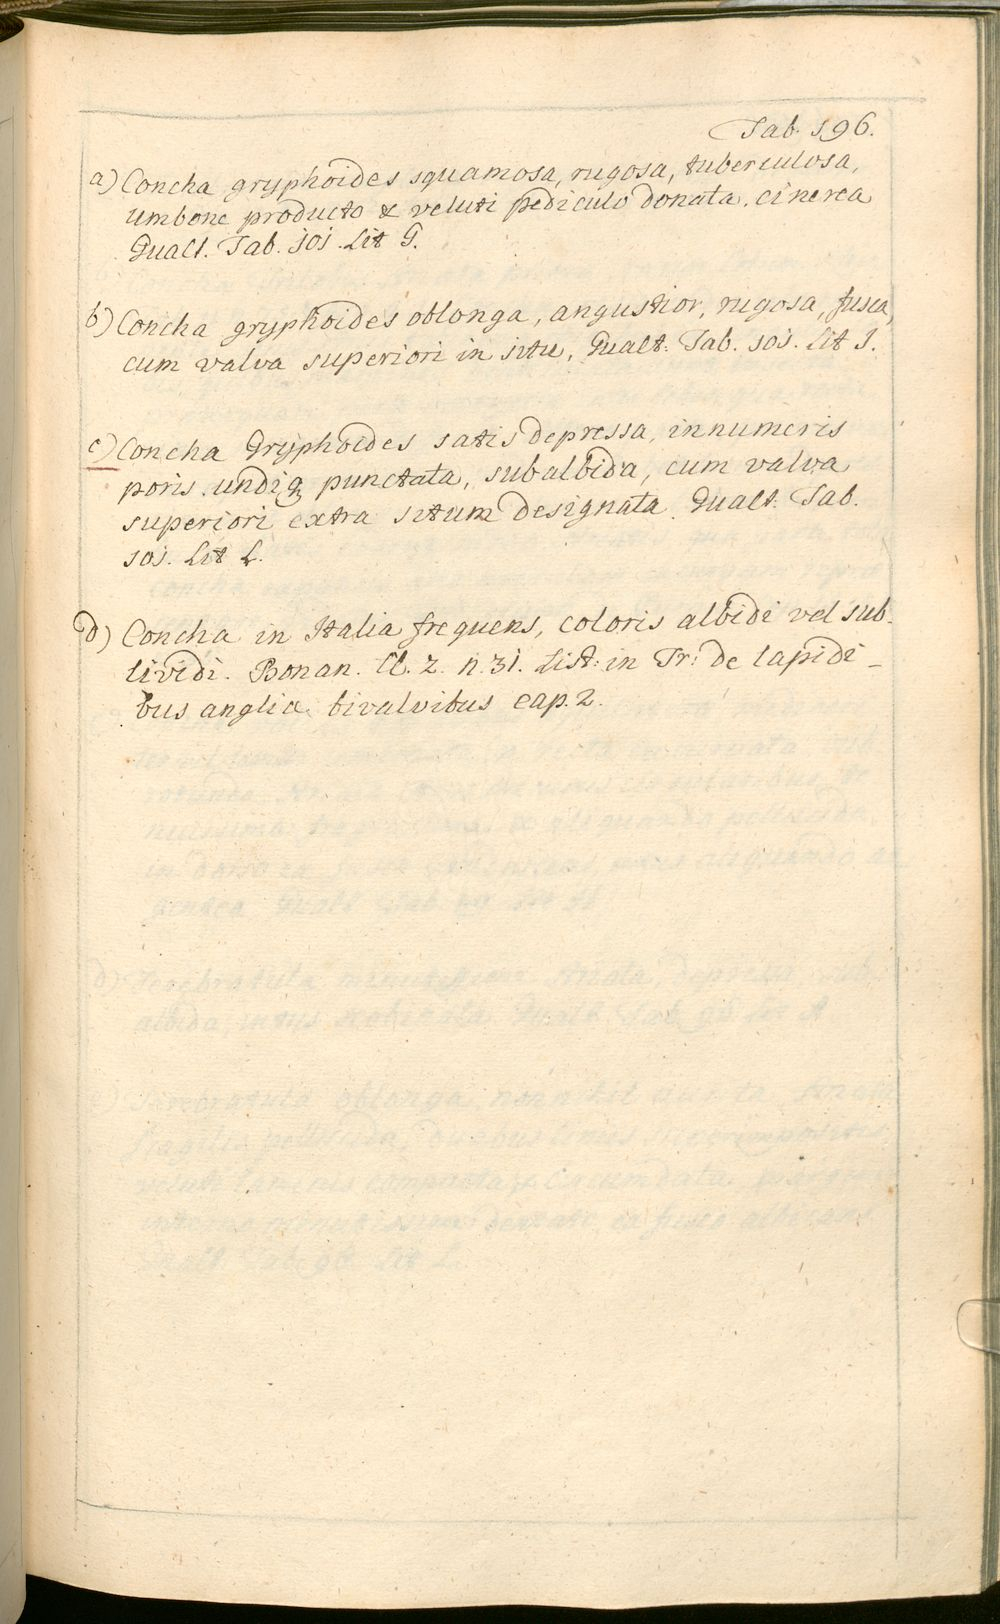 Tab. 196.
a) Concha gryphoides squamosa, rugosa, tuberculosa,
umbone producto & veluti pediculo donata. cinerea
Gualt. Tab. 101. Lit G.
b) Concha gryphoides oblonga, angustior, rugosa, fusca,
cum valva superiori in situ, Gualt. Tab. 101. Lit I.
c) Concha Gryphoides satis depressa, innumeris
poris undiq punctata, subalbida, cum valva
superiori extra situm designata. Gualt. Tab.
101. Lit L.
d) Concha in Italia frequens, coloris albidi vel sub-
lividi. Bonan. Cl. 2. n. 31. List: in Tr: de lapidi-
bus angliæ bivalvibus cap. 2.